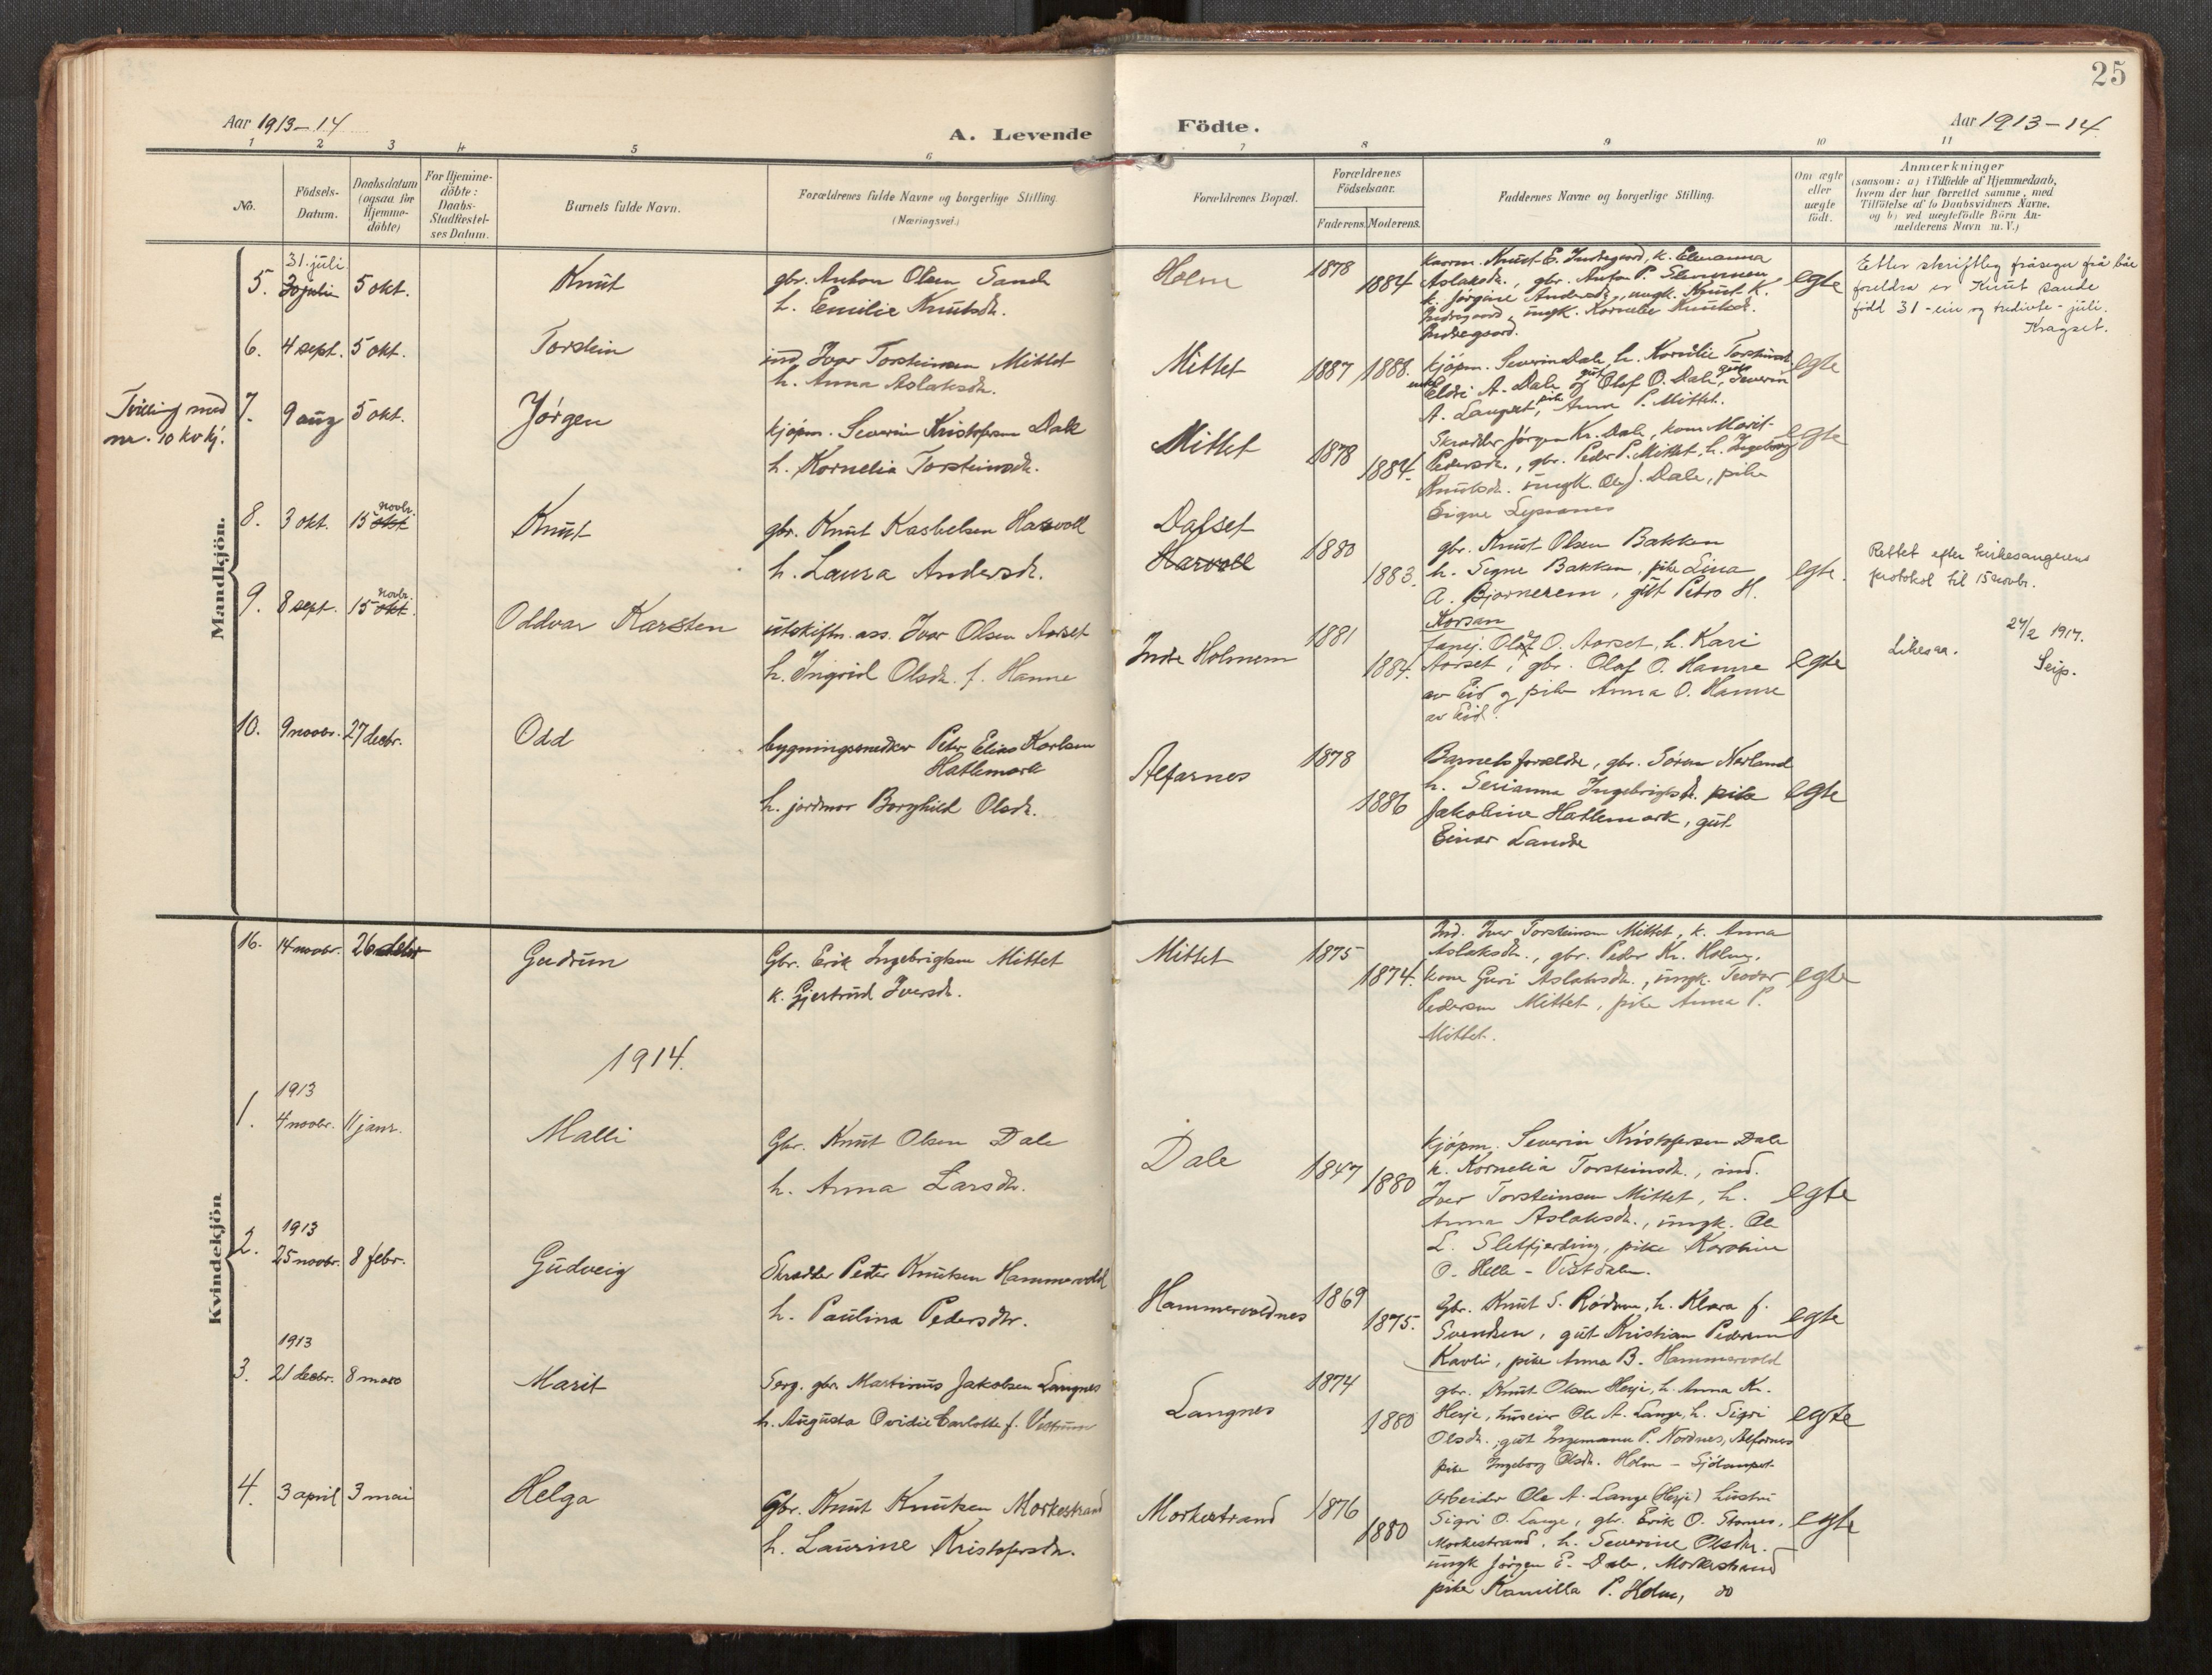 25
Aar 1913-14
A. Levende
Födte.
Aar 1913-14.
1 2 3 4 5 6 7 8 9 10 11
No.
Födsels-
Datum.
Daabsdatum
(ogsaa for
Hjemme-
döbte)
For Hjemme-
döbte:
Daabs-
Stadfæstel-
ses Datum.
Barnets fulde Navn.
Forældrenes fulde Navne og borgerlige Stilling.
(Næringsvei.)
Forældrenes Bopæl.
Forældrenes
Födselsaar.
Faderens.
Moderens.
Faddernes Navne og borgerlige Stilling.
Om ægte
eller
uægte
födt.
Anmærkninger
(saasom: a) i Tilfælde af Hjemmedaab,
hvem der har forrettet samme, med
Tilföielse af to Daabsvidners Navne,
og b) ved uægtefödte Börn An-
melderens Navn m. V.)
Mandkjön.
31. juli
5. 30 juli 5 okt.
Knut
gbr. Anton Olsen Sande
h. Emilie Knutsdr.
Holm
1878
1884
Knut E. Indregaard, k. Elenanna
Aslaksdr., gbr. Anton P.
k. Jørgine Andersdr., ungk. Knut K.
Indregaard, ungk. Kornelie Knutsd.
Indregaard.
egte
Etter skriftleg fråsegn frå båe
foreldra er Knut Sande
född 31 - ein og tredivte - juli.
Kragset.
6. 4 sept. 5 okt.
Torstein
ind. Ivar Torsteinsen Mittet
h. Anna Aslaksdr.
Mittet
1887 1888.
kjöpm. Severin Dale, h. Kornelie Torsteinsdr.
enke Eldri A. Dale og gut Olof O. Dale, gut Severin
A. Langset, pike Anne P. Mittet.
egte
Tvilling med
nr. 10 kvkj.
7. 9 aug 5 okt.
Jörgen
kjöpm. Severin Kristofersen Dale
h. Kornelia Torsteinsdr.
Mittet
1878
1884.
Skrædder Jörgen Kr. Dale, kone Marit
Pedersdr., gbr. Peder P. Mittet, h. Ingeborg
Knutsdr. ungk. Olaf J. Dale, pike
Signe Lysones
egte
8. 3 okt. 15 okt novbr.
Knut
gbr. Knut Kasbelsen Harvoll
h. Laura Andersdr.
Dalset
Harvoll
1880
1883.
gbr. Knut Olsen Bakken
h. Signe Bakken, pike Lina
A. Bjornerem, gut Petro H.
Korsan
egte.
Rettet efter kirkesangerens
protokol til 15 novbr.
9. 8 sept. 15 okt novbr.
Oddvar Karsten
utskiftn. ass. Ivar Olsen Aarset
h. Ingrid Olsdr. f. Hanne
Indre Holmem
1881
1884.
Olaf O. Aarset, h. Kari
Aarset, gbr. Olaf O. Hanne
av Eid og pike Anna O. Hanne
av Eid.
egte
Likesaa.
24/2 1917.
Seip.
10. 9 novbr. 27 decbr.
Odd
bygningssnedker Peter Elias Karlsen
Hatlemark
h. jordmor Borghild Olsdr.
Alfarnes
1878
1886
Barnets forældre, gbr. Sören Nerland
h. Serianna Ingebrigtsdr. pike
Jakobine Hatlemark, gut
Einar Lande
egte
Kvindekjön
16. 14 novbr. 26 decbr
Gudrun
Gbr. Erik Ingebrigtsen Mittet
k. Gjertrud Iversdr.
Mittet
1875
1874.
Ind. Iver Torsteinsen Mittet, k. Anna
Aslaksdr., gbr. Peder Kr. Holm,
kone Guri Aslaksdr., ungk. Teodor
Pedersen Mittet, pike Anna P.
Mittet.
egte
1914.
1913
1. 4 novbr. 11 janr.
Malli
Gbr. Knut Olsen Dale
h. Anna Larsdr.
Dale
1847
1880
kjöpm. Severin Kristofersen Dale
h. Kornelia Torsteinsdr., ind.
Iver Torsteinsen Mittet, h.
Anna Aslaksdr., ungk. Ole
L. Sletfjerding, pike Karoline
O. Helle - Vistdalen.
egte
1913
2. 25 novbr. 8 febr.
Gudveig
Skrædder Peder Knutsen Hammervold
h. Paulina Pedersdtr.
Hammervoldnes
1869
1875.
Gbr. Knut S. Rödven, h. Klara f.
Svendsen, gut Kristian Pedersen
Kavli, pike Anna B. Hammervold
egte
1913
3. 21 decbr. 8 mars
Marit
Serg. gbr. Martinus Jakobsen Langnes
h. Augusta Ovidie Carlotte f.
Langnes
1874
1880
gbr. Knut Olsen Hesje, h. Anna Kr.
Hesje, huseier Ole A. Lange, h. Sigri
Olsdr., gut Ingemann P. Nordnes, Alfarnes
pike Ingeborg Olsdr. Holm -
egte
4. 3 april 3 mai
Helga
Gbr. Knut Knutsen Morkestrand
h. Laurine Kristofersdr.
Morkestrand
1876
1880
Arbeider Ole A. Lange (Hesje) hustru
Sigri O. Lange, gbr. Erik O. Stornes,
Morkestrand, h. Severine Olsdtr.
ungk Jörgen E. Dale, Morkestrand
pike Kamilla P. Holm, do
egte